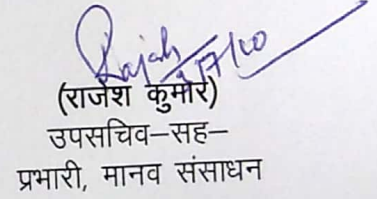 Rajesh
(राजेश कुमार)
उपसचिव–सह–
प्रभारी, मानव संसाधन